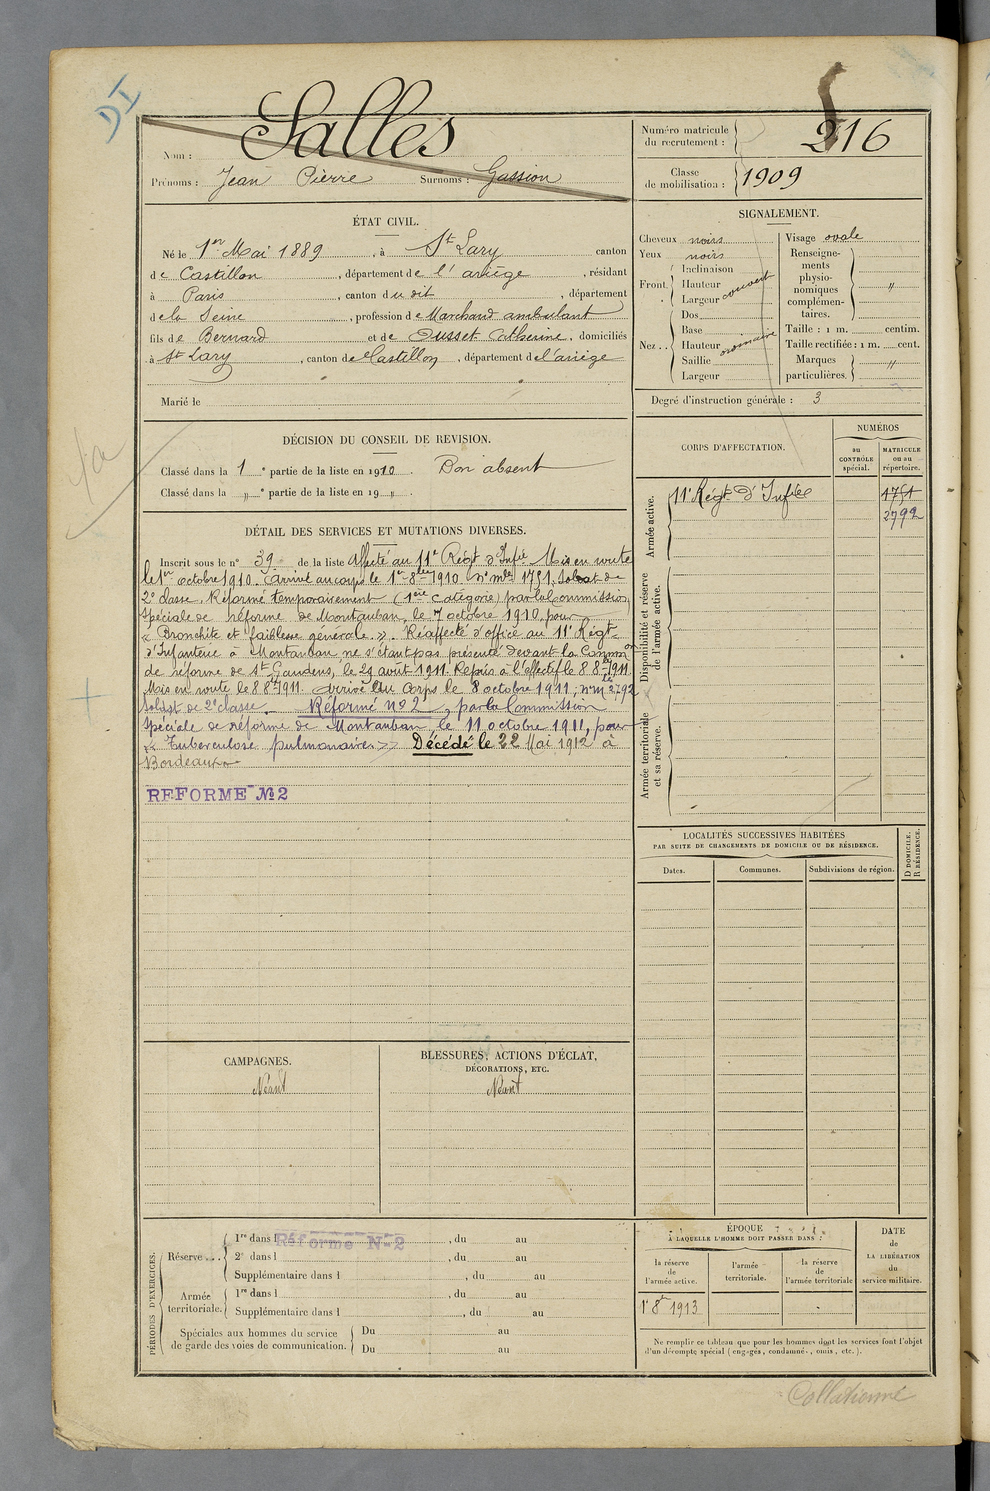 DI
Nom : Salles
Prénoms : Jean Pierre Surnoms : Gassion
Numéro matricule du recrutement : 216
Classe de mobilisation : 1909
ÉTAT CIVIL.
Né le 1er Mai 1889, à St Lary canton
de Castillon, département de l'ariège, résidant
à Paris, canton du dit, département
de la Seine, profession de Marchand ambulant
fils de Bernard et de Eusset Catherine, domiciliés
à St Lary, canton de Castillon, département de l'ariège
Marié le
SIGNALEMENT.
Cheveux noirs
Yeux noirs
Front. Inclinaison
Hauteur
Largeur couvert
Nez.. Dos
Base
Hauteur
Saillie
Largeur
Visage ovale
Renseigne-
ments
physio-
nomiques
complémen-
taires. "
Taille : 1 m. centim.
Taille rectifiée : 1 m. cent.
Marques
particulières. "
Degré d'instruction générale : 3
DÉCISION DU CONSEIL DE REVISION.
Classé dans la 1e partie de la liste en 1910. Bon absent
Classé dans la " e partie de la liste en 19 " .
DÉTAIL DES SERVICES ET MUTATIONS DIVERSES.
Inscrit sous le n° 39 de la liste Affecté au 11e Régt d'Infie Mis en route
le 1er octobre 1910. Arrivé au corps le 1er 8bre 1910 n° mle 1751. Soldat de
2e classe. Réformé temporairement (1ère catégorie) par la Commission
Spéciale de réforme de Montauban, le 7 octobre 1910, pour
« Bronchite et faiblesse générale ». Réaffecté d'office au 11e Régt
d'Infanterie à Montauban ne s'étant pas présenté devant la Common
de réforme de St Gaudens, le 29 août 1911. Repris à l'effectif le 8 8bre 1911
Mis en route le 8 8bre 1911. Arrivé au Corps le 8 octobre 1911, n° mle 2792
Soldat de 2e classe. Réformé n° 2, par la Commission
Spéciale de réforme de Montauban, le 11 octobre 1911, pour
« Tuberculose pulmonaire » Décédé le 22 Mai 1912 à
Bordeaux
REFORME No 2
CORPS D'AFFECTATION.
NUMÉROS
au CONTRÔLE spécial.
MATRICULE ou au répertoire.
Armée active.
11e Régt d'Infie 1751
2792
Disponibilité et réserve de l'armée active.
Armée territoriale et sa réserve.
LOCALITÉS SUCCESSIVES HABITÉES
PAR SUITE DE CHANGEMENTS DE DOMICILE OU DE RÉSIDENCE.
D DOMICILE. R RÉSIDENCE.
Dates. Communes. Subdivisions de région.
CAMPAGNES.
Néant
BLESSURES, ACTIONS D'ÉCLAT,
DÉCORATIONS, ETC.
Néant
PÉRIODES D'EXERCICES.
Réserve... 1re dans l Réforme No 2, du au
2e dans l , du au
Supplémentaire dans l , du au
Armée territoriale. 1re dans l , du au
Supplémentaire dans l , du au
Spéciales aux hommes du service
de garde des voies de communication.
Du au
Du au
ÉPOQUE
À LAQUELLE L'HOMME DOIT PASSER DANS :
la réserve de l'armée active.
l'armée territoriale.
la réserve de l'armée territoriale
DATE DE LA LIBÉRATION du service militaire.
1er 8bre 1913
Ne remplir ce tableau que pour les hommes dont les services font l'objet
d'un décompte spécial (engagés, condamnés, omis, etc.).
Collationné